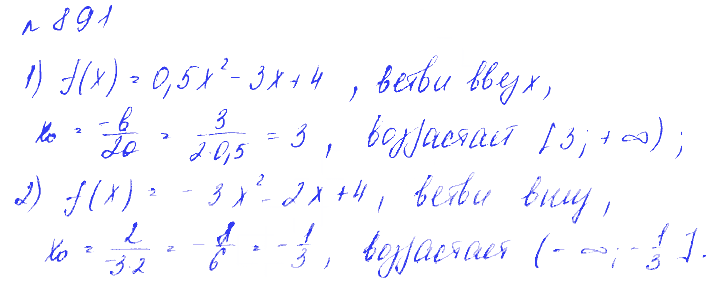 № 891
1) f(x) = 0,5x² - 3x + 4, ветви вверх,
x₀ = -b/2a = 3/(2·0,5) = 3, возрастает [3; +∞);
2) f(x) = -3x² - 2x + 4, ветви вниз,
x₀ = 2/(-3·2) = -2/6 = -1/3, возрастает (-∞; -1/3].